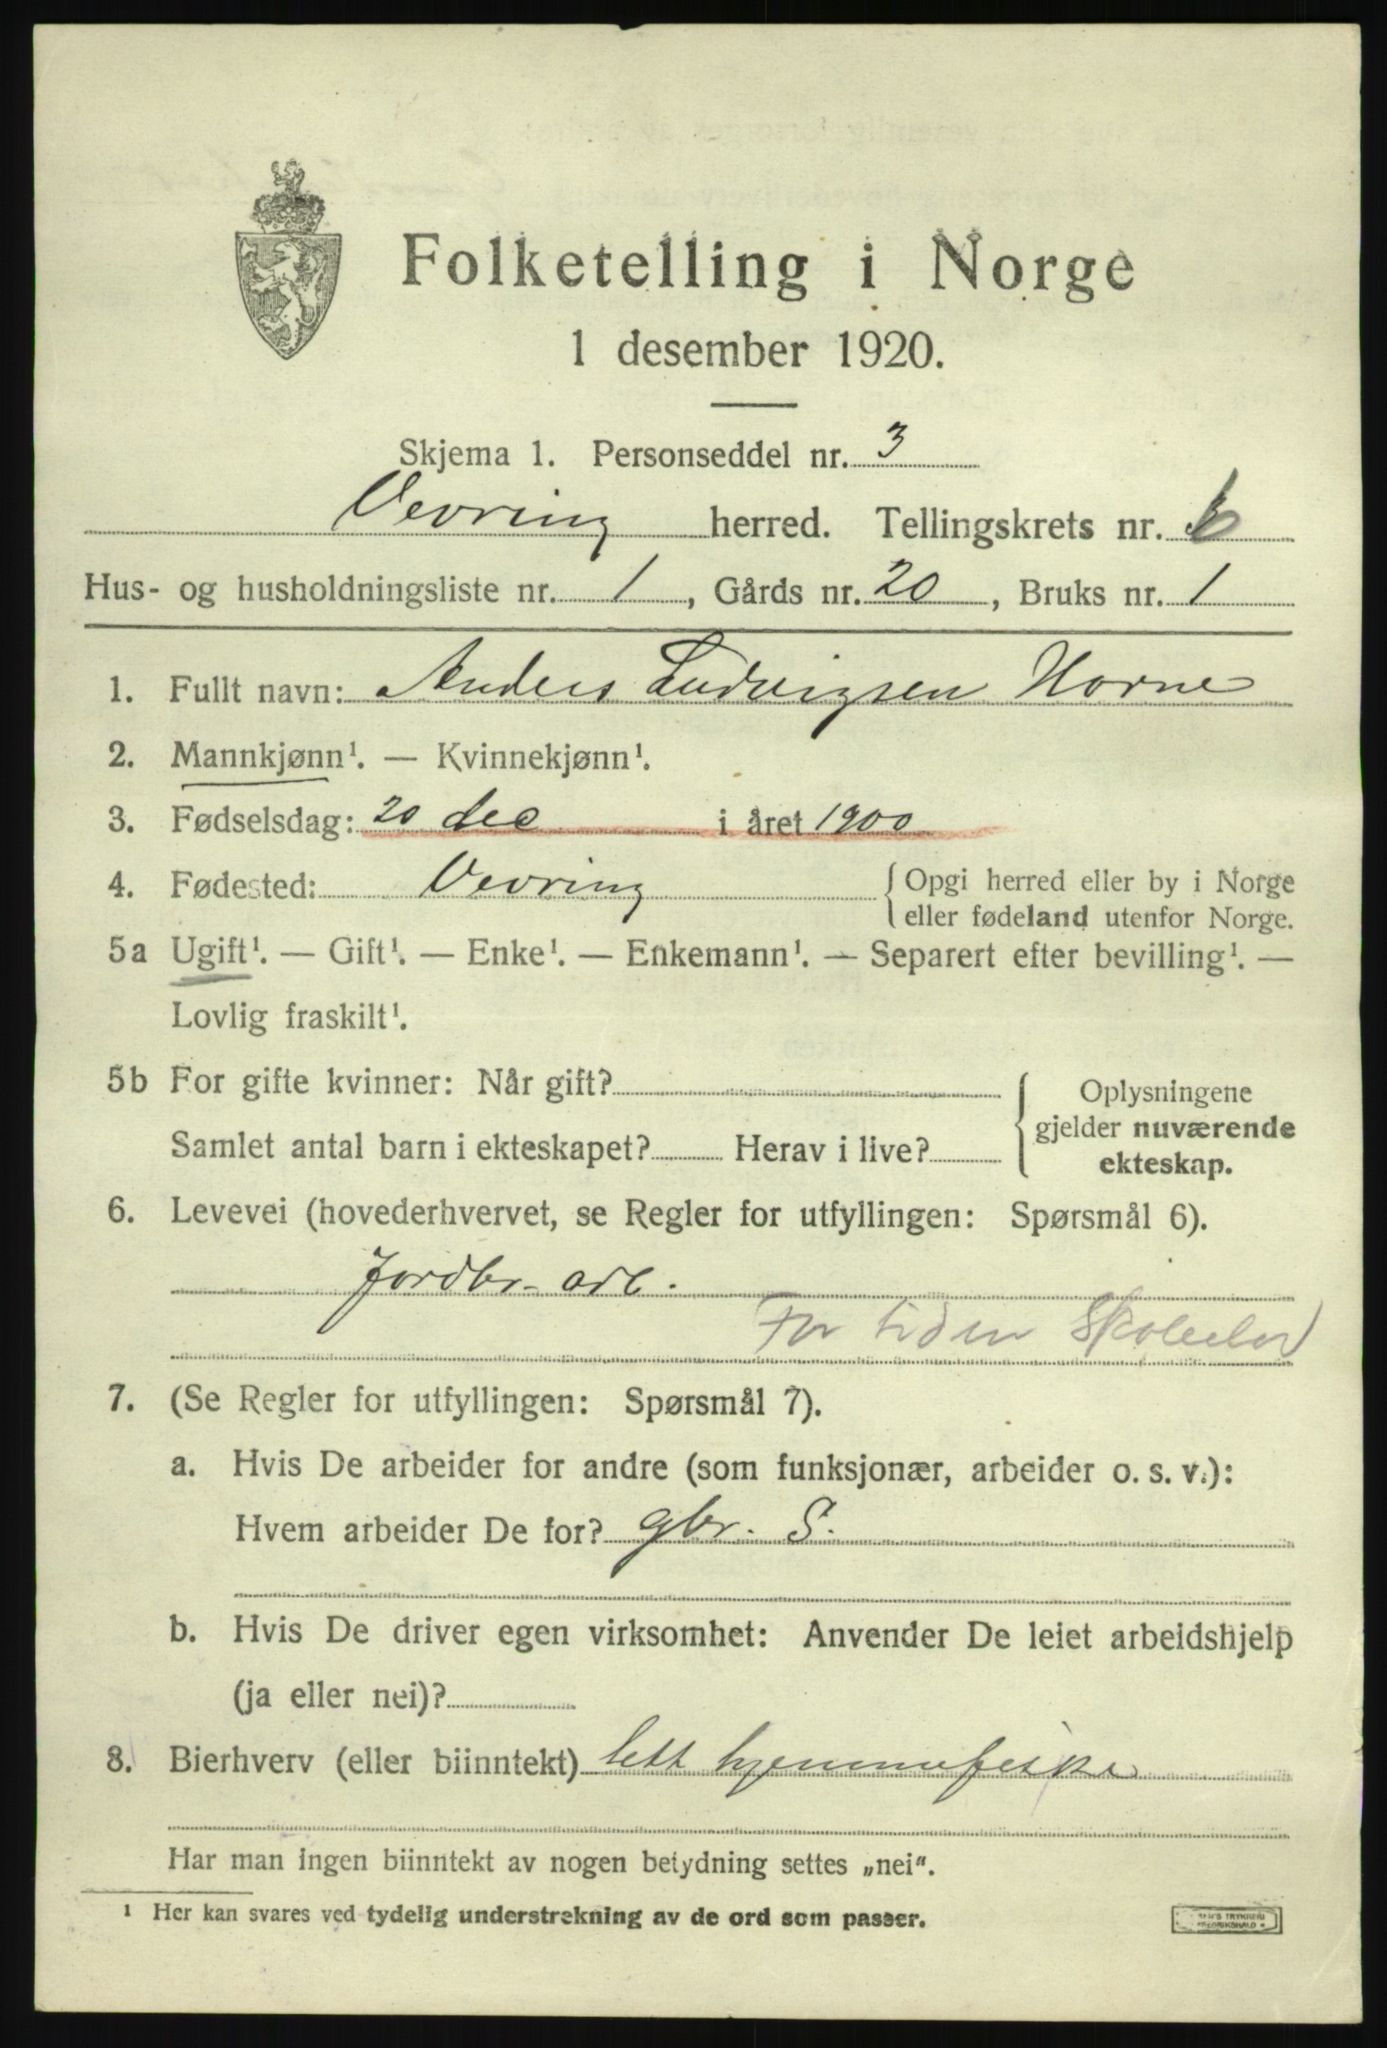 Folketelling i Norge
1 desember 1920.
Skjema 1. Personseddel nr. 3
Vevring herred. Tellingskrets nr. 6
Hus- og husholdningsliste nr. 1, Gårds nr. 20, Bruks nr. 1
1. Fullt navn: Anders Ludvigsen Horne
2. Mannkjønn¹. — Kvinnekjønn¹.
3. Fødselsdag: 20 dec i året 1900
4. Fødested: Vevring { Opgi herred eller by i Norge
eller fødeland utenfor Norge.
5a Ugift¹. — Gift¹. — Enke¹. — Enkemann¹. — Separert efter bevilling¹. —
Lovlig fraskilt¹.
5b For gifte kvinner: Når gift?
Samlet antal barn i ekteskapet? Herav i live?
{ Oplysningene
gjelder nuværende
ekteskap.
6. Levevei (hovederhvervet, se Regler for utfyllingen: Spørsmål 6).
Jordbr- arb.
For tiden
7. (Se Regler for utfyllingen: Spørsmål 7).
a. Hvis De arbeider for andre (som funksjonær, arbeider o. s. v.):
Hvem arbeider De for? gbr. S.
b. Hvis De driver egen virksomhet: Anvender De leiet arbeidshjelp
(ja eller nei)?
8. Bierhverv (eller biinntekt) litt hjemmefiske
Har man ingen biinntekt av nogen betydning settes „nei“.
¹ Her kan svares ved tydelig understrekning av de ord som passer.